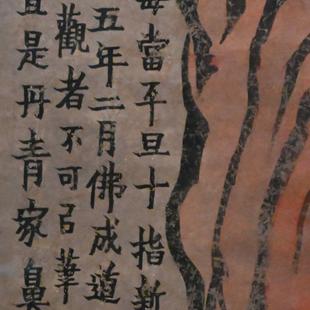 每當平旦十指新
五年二月佛成道
觀者不可㠯筆
是丹青家鼻